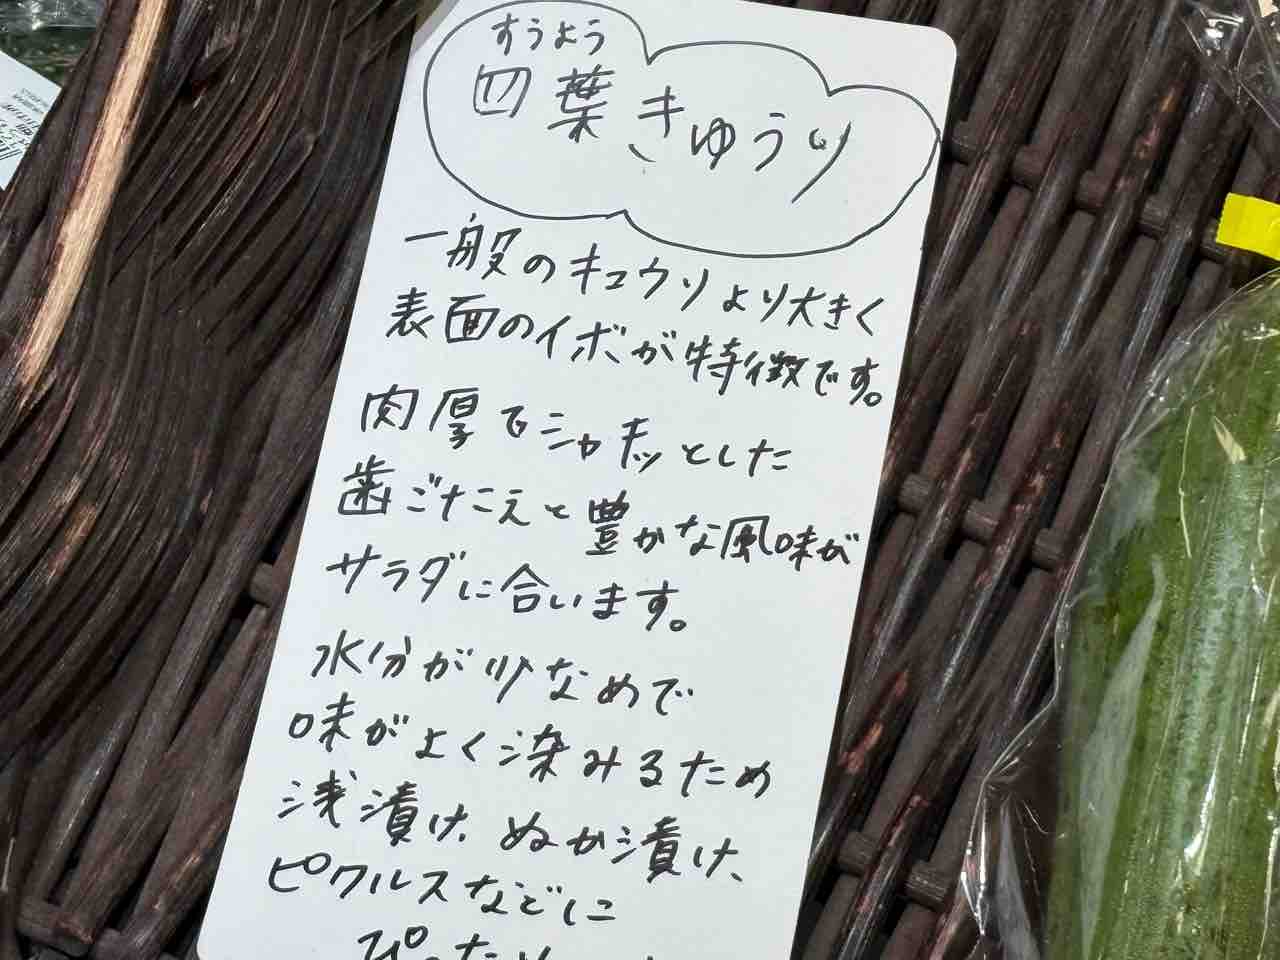 すうよう
四葉きゅうり
一般のキュウリより大きく
表面のイボが特徴です。
肉厚でシャキッとした
歯ごたえと豊かな風味が
サラダに合います。
水分が少なめで
味がよく染みるため
浅漬け、ぬか漬け、
ピクルスなどに